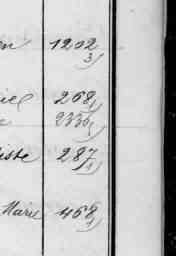 en 1202
3/
iel 268/
e 2336/
iste 287
/1
Marie 468/
1